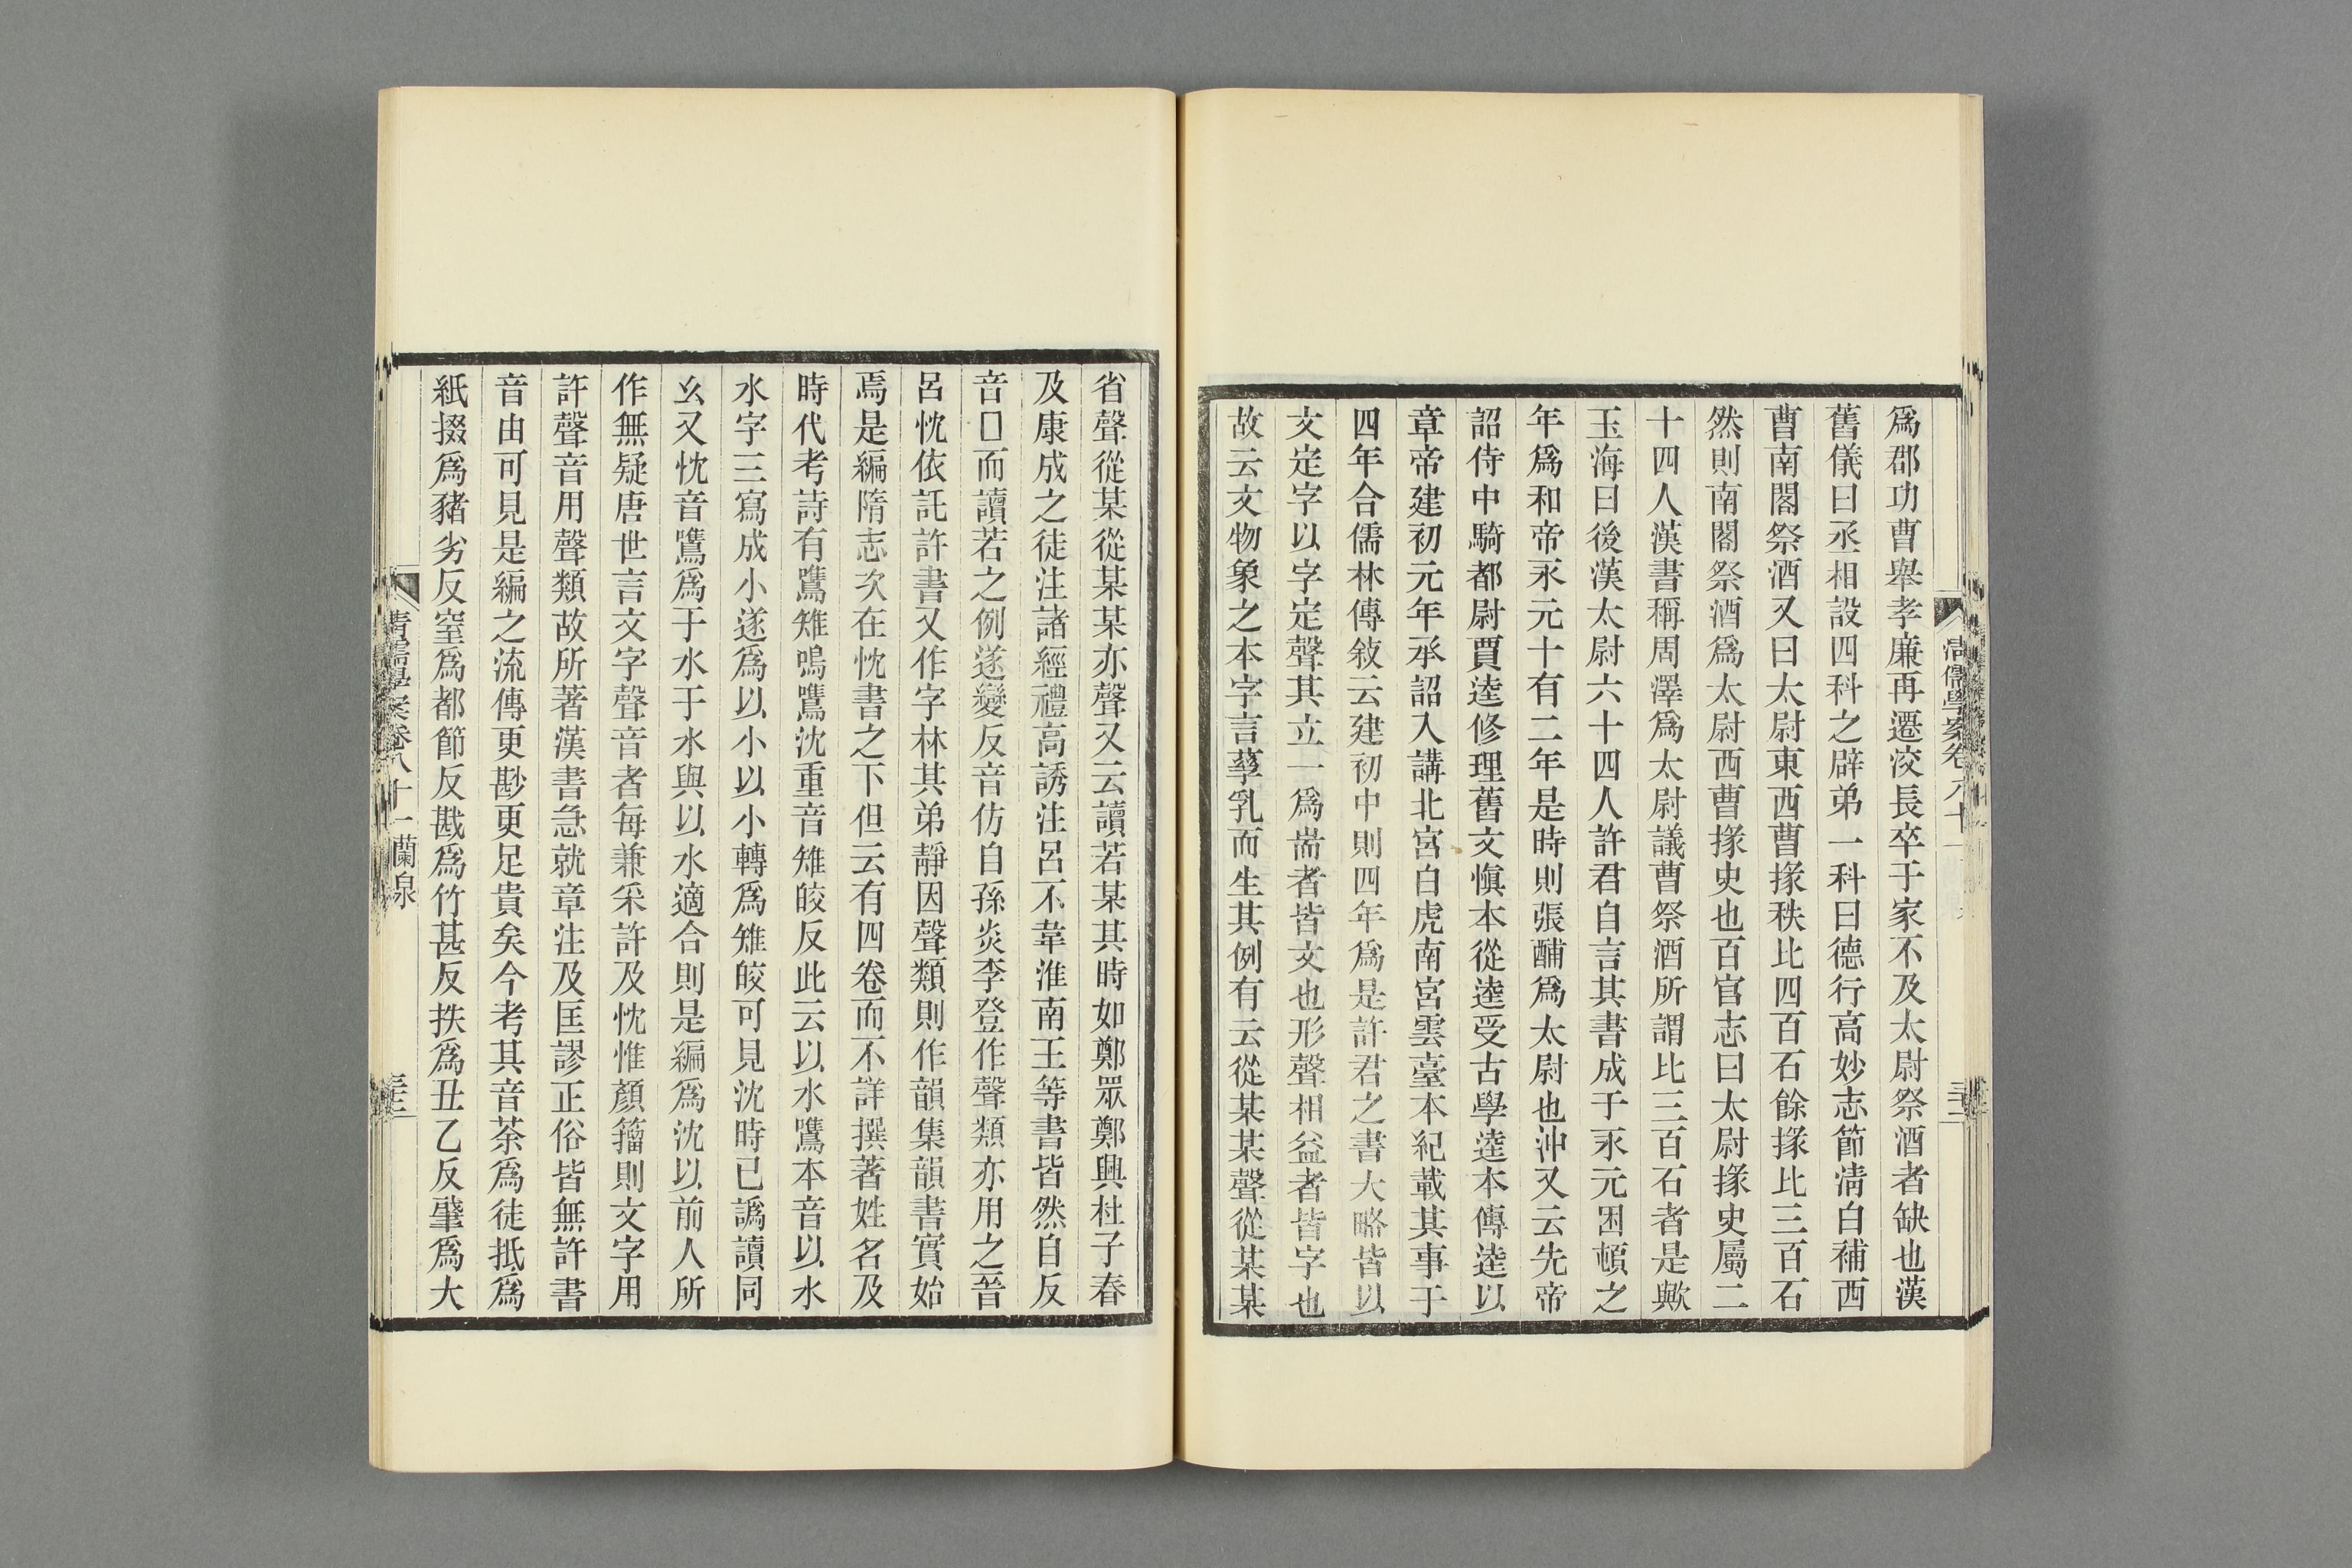 爲郡功曹舉孝廉再遷洨長卒于家不及太尉祭酒者缺也漢
舊儀曰丞相設四科之辟弟一科曰德行高妙志節淸白補西
曹南閣祭酒又曰太尉東西曹掾秩比四百石餘掾比三百石
然則南閣祭酒爲太尉西曹掾史也百官志曰太尉掾史屬二
十四人漢書稱周澤爲太尉議曹祭酒所謂比三百石者是歟
玉海曰後漢太尉六十四人許君自言其書成于永元困頓之
年爲和帝永元十有二年是時則張酺爲太尉也沖又云先帝
詔侍中騎都尉賈逵修理舊文愼本從逵受古學逵本傳逵以
章帝建初元年承詔入講北宮白虎南宮雲臺本紀載其事于
四年合儒林傳敍云建初中則四年爲是許君之書大略皆以
文定字以字定聲其立一爲耑者皆文也形聲相益者皆字也
故云文物象之本字言孳乳而生其例有云從某某聲從某某
省聲從某從某某亦聲又云讀若某其時如鄭眾鄭興杜子春
及康成之徒注諸經禮高誘注呂不韋淮南王等書皆然自反
音□而讀若之例遂變反音仿自孫炎李登作聲類亦用之晉
呂忱依託許書又作字林其弟靜因聲類則作韻集韻書實始
焉是編隋志次在忱書之下但云有四卷而不詳撰著姓名及
時代考詩有鷕雉鳴鷕沈重音雉皎反此云以水鷕本音以水
水字三寫成小遂爲以小以小轉爲雉皎可見沈時已譌讀同
幺又忱音鷕爲于水于水與以水適合則是編爲沈以前人所
作無疑唐世言文字聲音者每兼采許及忱惟顏籀則文字用
許聲音用聲類故所著漢書急就章注及匡謬正俗皆無許書
音由可見是編之流傳更尟更足貴矣今考其音荼爲徒抵爲
紙掇爲豬劣反窒爲都節反戡爲竹甚反抶爲丑乙反肇爲大
清儒學案卷八十一蘭泉